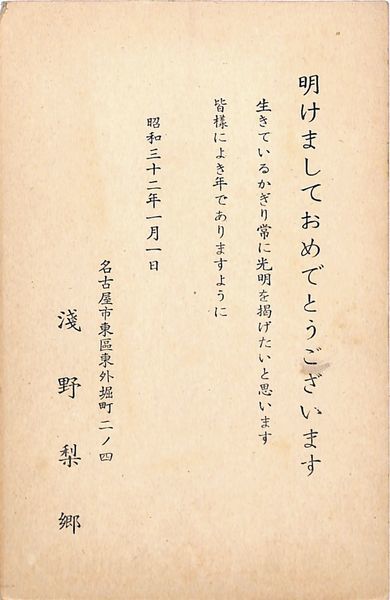 明けましておめでとうございます
生きているかぎり常に光明を揭げたいと思います
皆様によき年でありますように
昭和三十二年一月一日
名古屋市東區東外堀町二ノ四
淺野梨郷